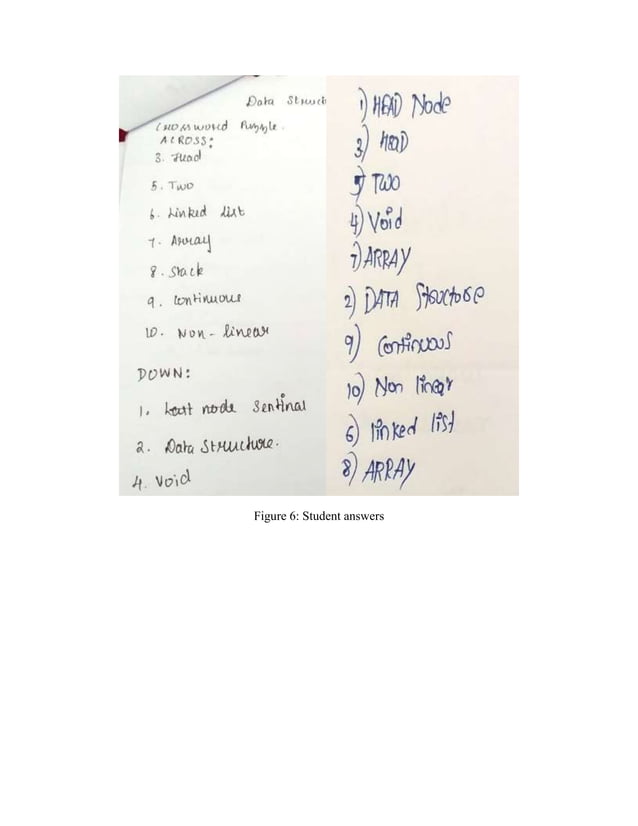 Data Struct
Crossword Puzzle.
ACROSS:
3. Head
5. Two
6. Linked list
7. Array
8. Stack
9. Continuous
10. Non-linear
DOWN:
1. Last node Sentinal
2. Data Structure.
4. Void
1) HEAD Node
3) HEAD
5) TWO
4) Void
7) ARRAY
2) DATA Structose
9) Continuous
10) Non linear
6) linked list
8) ARRAY
Figure 6: Student answers